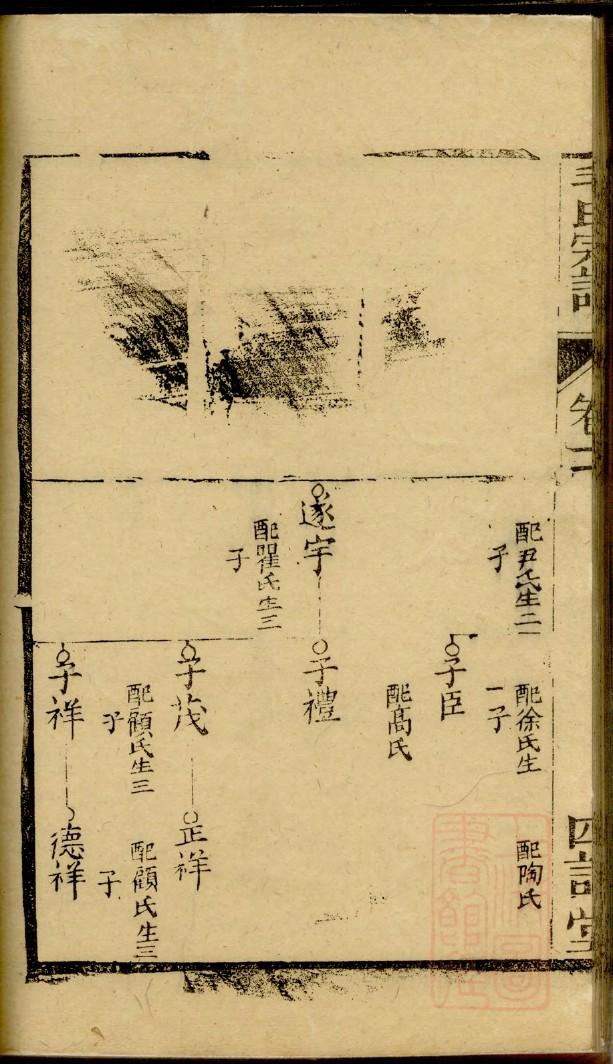 氏宗譜
卷二
配尹氏生二
子
配徐氏生
一子
配陶氏
子臣
配高氏
遂宇
子禮
配瞿氏生三
子
子茂
正祥
配顧氏生三
子
配顧氏生三
子
子祥
德祥